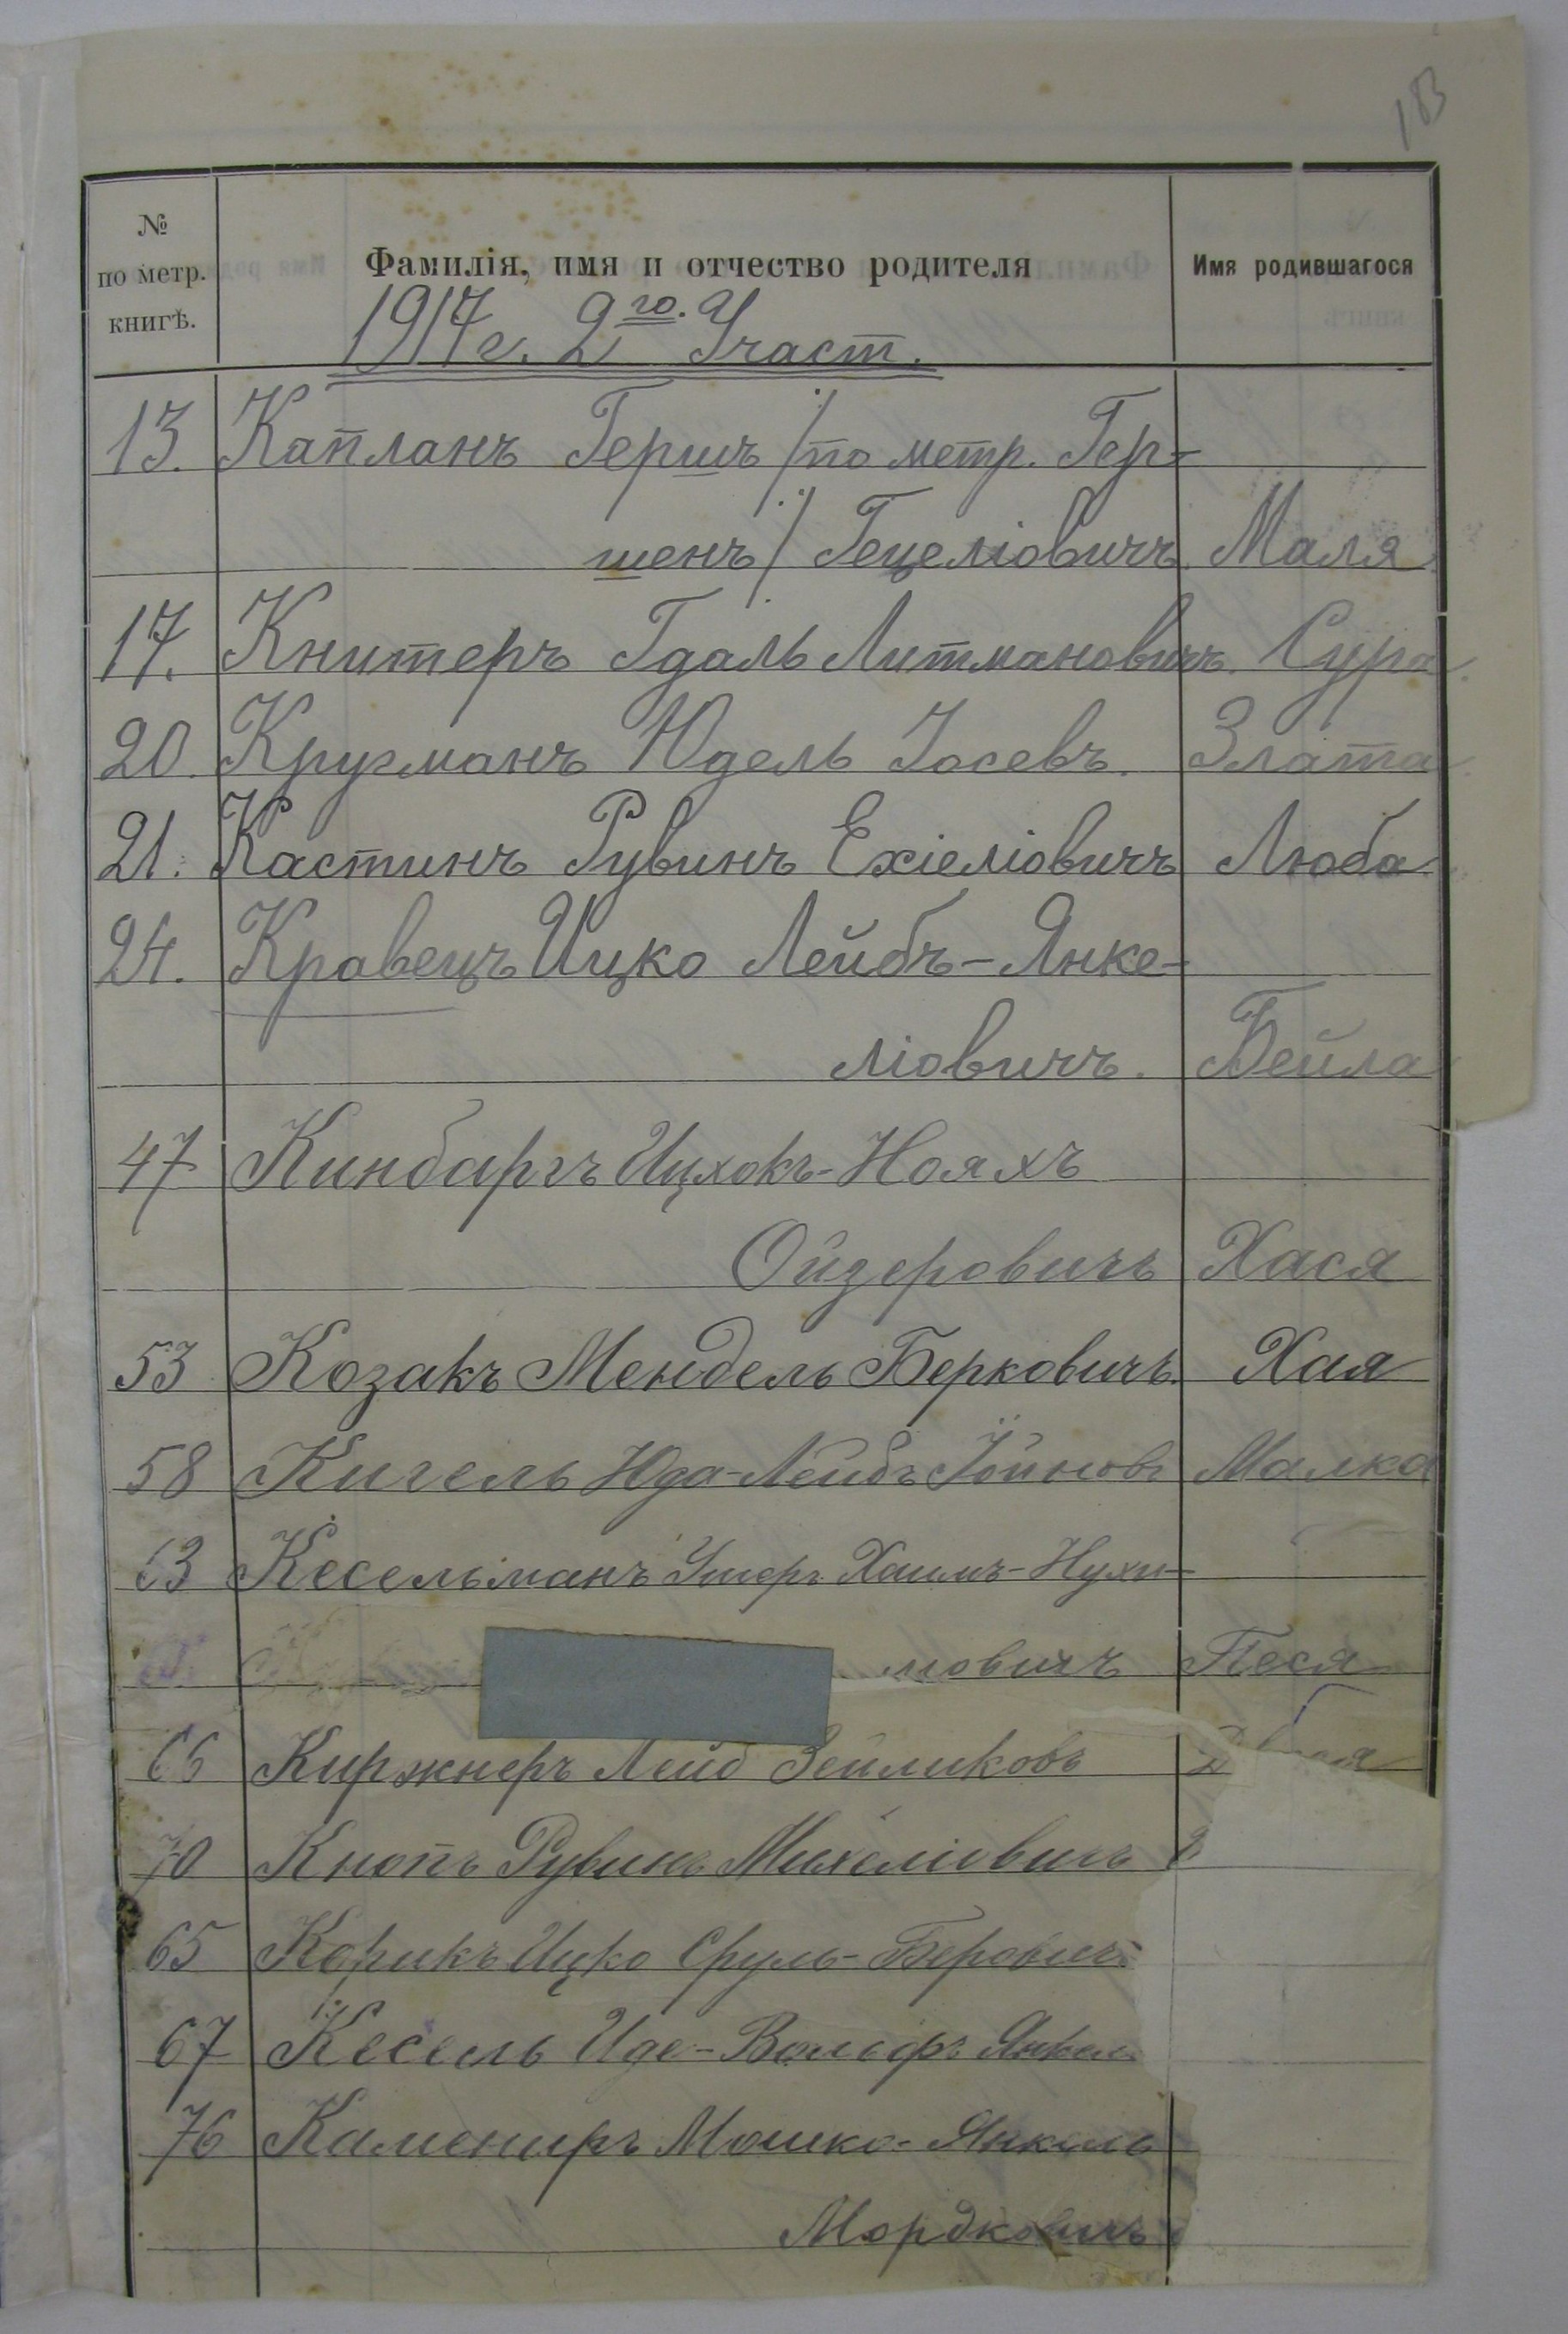 183
№ по метр. книгѣ. Фамилія, имя и отчество родителя Имя родившагося
1917 г. 2го. Участ.
13. Капланъ Гершъ /по метр. Гер-
шенъ/ Гецеліовичъ Маля
17. Книтеръ Гдаль Литмановичъ. Сура.
20. Кругманъ Юдель Іосевъ. Злата
21. Кастинъ Рувинъ Ехіеліовичъ Люба
24. Кравецъ Ицко Лейбъ-Янке-
ліовичъ. Бейла
47 Кинбаргъ Ицхокъ-Нояхъ
Ойзеровичъ Хася
53 Козакъ Мендель Берковичъ. Хая
58 Кигель Юда-Лейбъ Іойновъ Малка
63 Кесельманъ Ушеръ Хаимъ-Нухи-
мовичъ Песя
66 Киржнеръ Лейб Зейликовъ
70 Кнопъ Рувинъ Михеліовичъ
65 Корикъ Ицко Сруль-Беровичъ
67 Кесель Иде-Вольфъ Янкел
76 Камениръ Мошко-Янкель
Мордковичъ